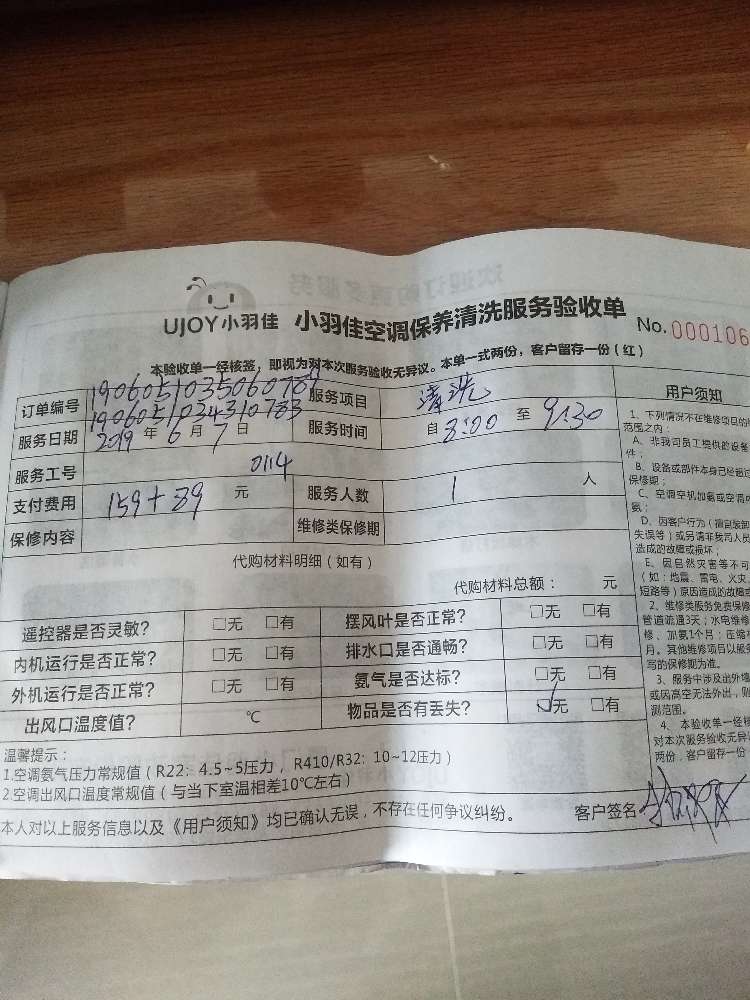 UJOY小羽佳 小羽佳空调保养清洗服务验收单 No.000106
本验收单一经核签，即视为对本次服务验收无异议。本单一式两份，客户留存一份（红）
订单编号 服务项目 清洗
服务日期 2019 年 6 月 7 日 服务时间 自 8:00 至 9:30
服务工号 0114
支付费用 159+89 元 服务人数 1 人
保修内容 维修类保修期
代购材料明细（如有）
代购材料总额： 元
遥控器是否灵敏？ □无 □有 摆风叶是否正常？ □无 □有
内机运行是否正常？ □无 □有 排水口是否通畅？ □无 □有
外机运行是否正常？ □无 □有 氨气是否达标？ □无 □有
出风口温度值？ ℃ 物品是否有丢失？ ☑无 □有
温馨提示：
1.空调氨气压力常规值（R22：4.5~5压力，R410/R32：10~12压力）
2.空调出风口温度常规值（与当下室温相差10℃左右）
本人对以上服务信息以及《用户须知》均已确认无误，不存在任何争议纠纷。 客户签名
用户须知
1、下列情况不在维修项目的
范围之内：
A、非我司员工提供的设备
件；
B、设备或部件本身已经超过
保修期；
C、空调空机加氨或空调
氨；
D、因客户行为（擅自装卸
失误等）或另请非我司人员
造成的故障或损坏；
E、因自然灾害等不可
（如：地震、雷电、火灾、
短路等）原因造成的故障或
2、维修类服务免费保修
管道疏通3天；水电维修
修、加氨1个月；压缩
月。其他维修项目以服务
写的保修期为准。
3、服务中涉及出外墙
或因高空无法外出，则
测范围。
4、本验收单一经核
对本次服务验收无异议
两份，客户留存一份